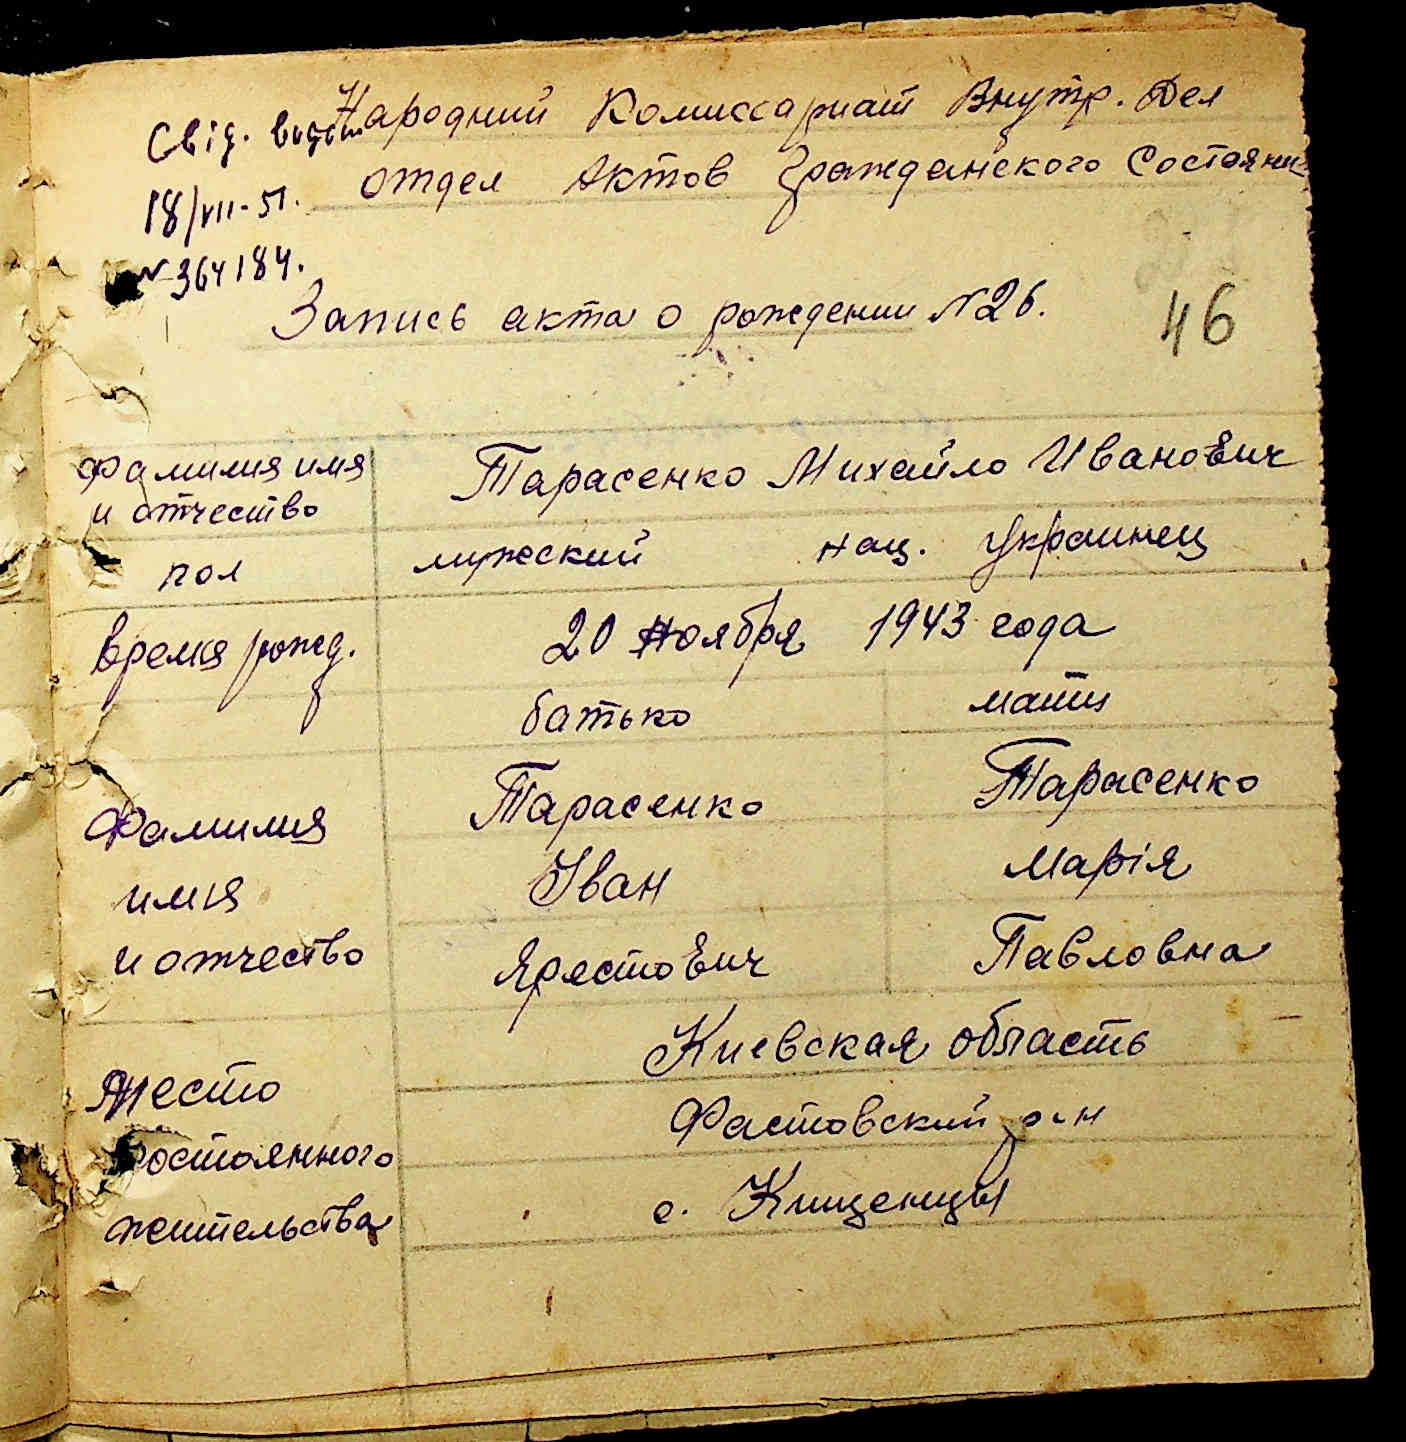 Народний Комиссариат Внутр. Дел
отдел Актов Гражданского Состояни
Свід.
18/VII-51.
N 364184.
Запись акта о рождении N26.
46
Фамилия имя
и отчество
Тарасенко Михайло Иванович
пол
мужеский нац. Украинец
Время рожд.
20 Ноября 1943 года
батько мати
Фамилия
Тарасенко Тарасенко
имя
Іван Марія
и отчество
Ярестович Павловна
Место
постоянного
жительства
Киевская область
Фастовский р-н
с. Кищенцы